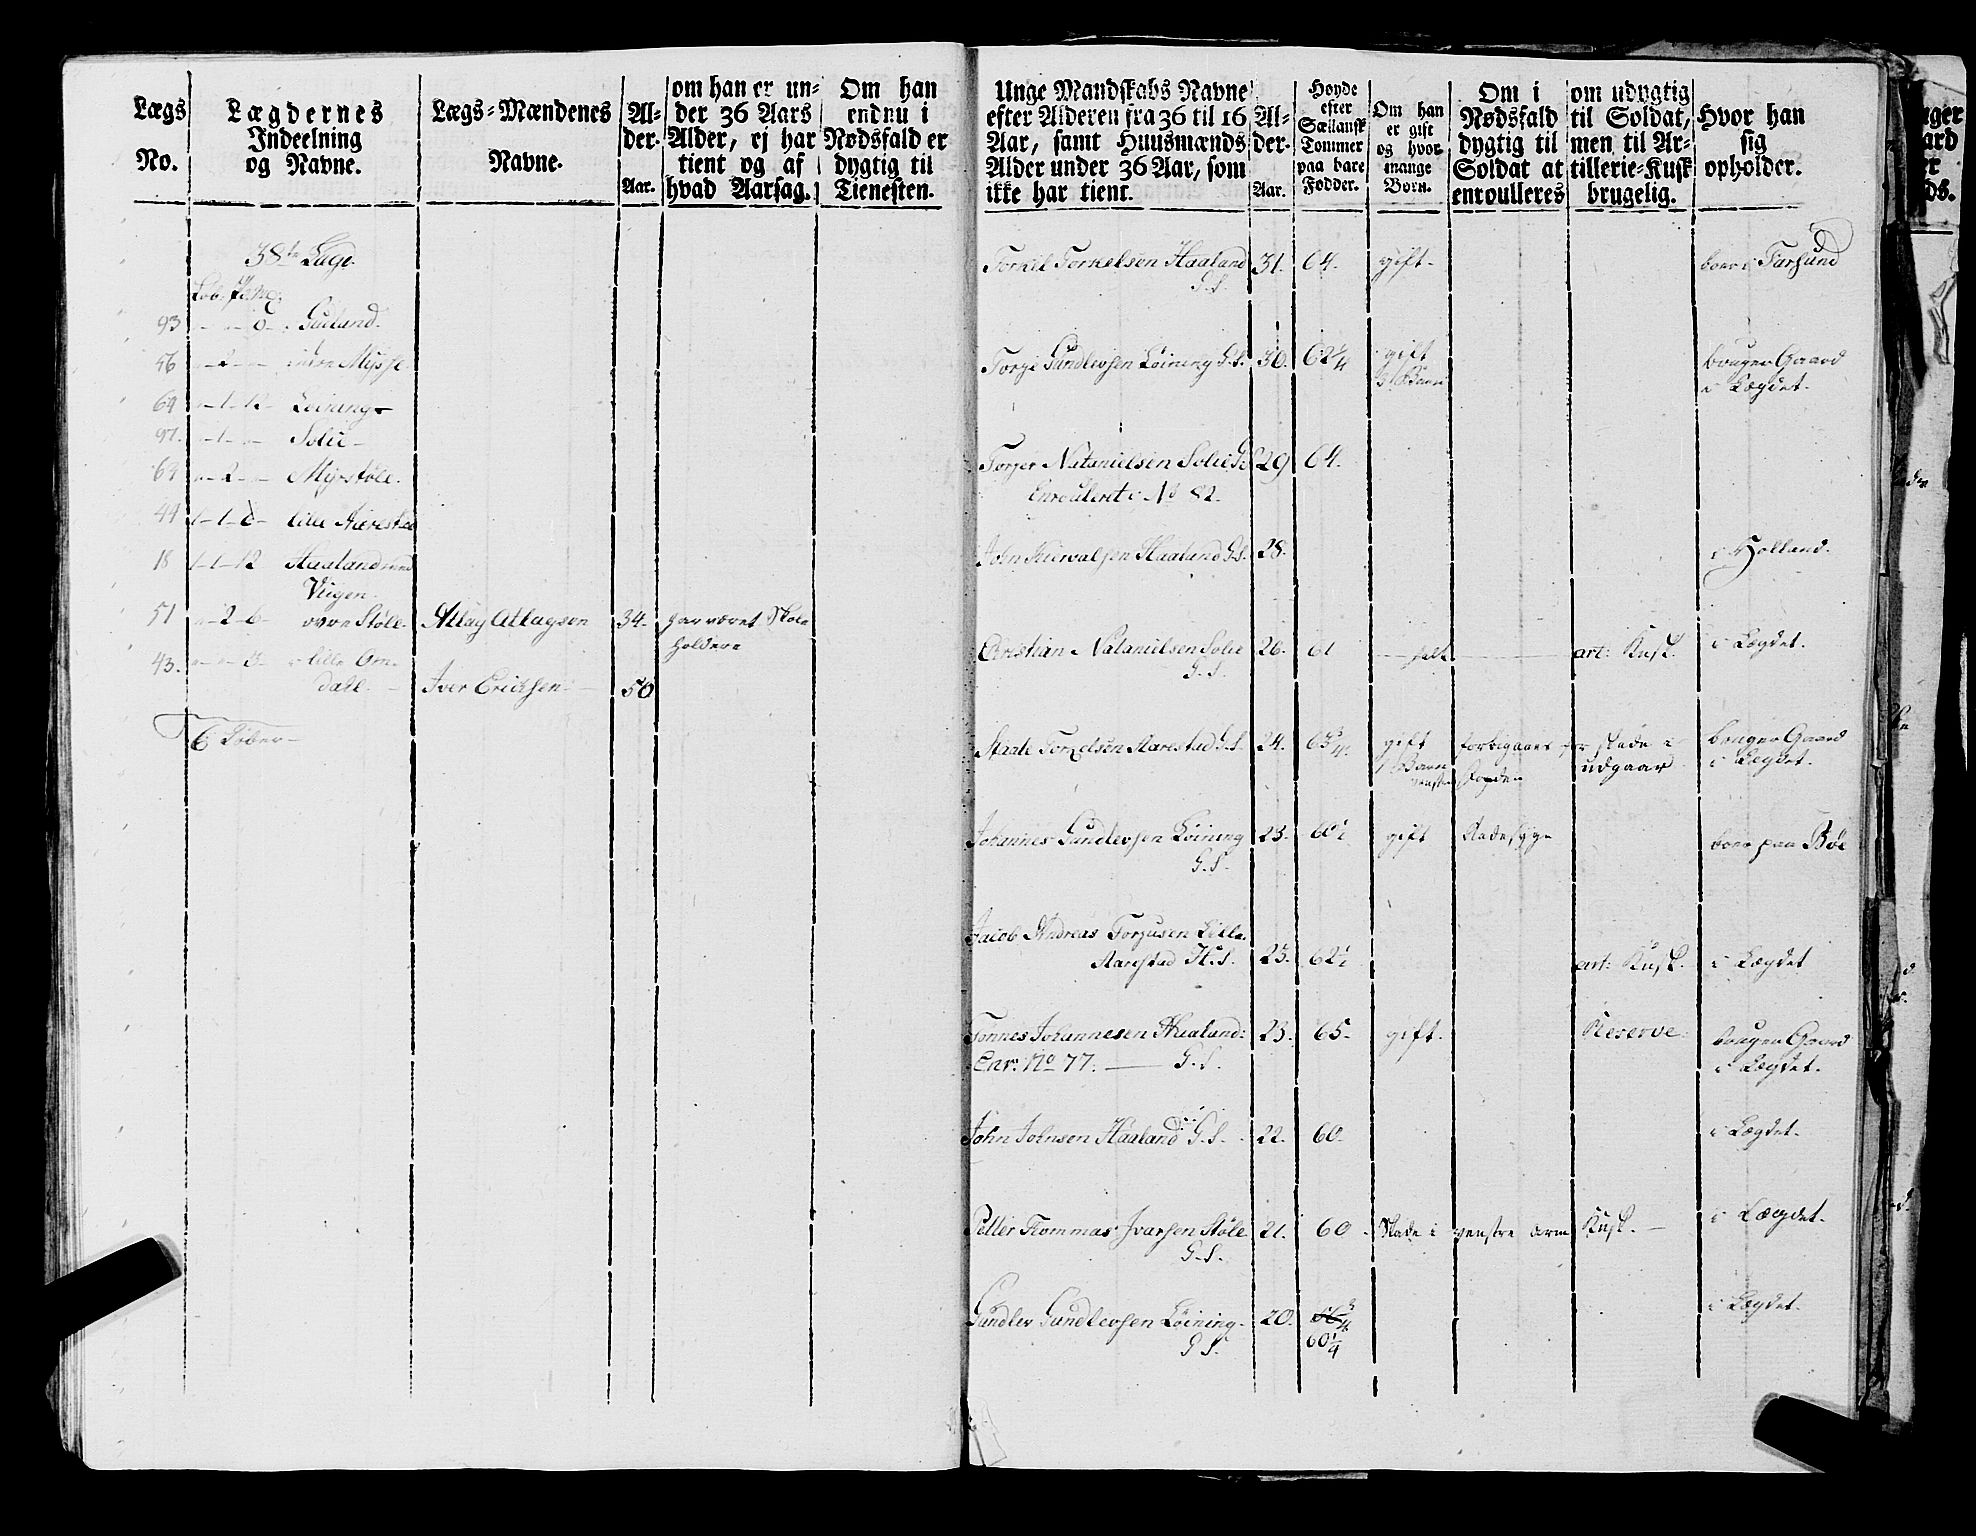 Lægs
No.
Lægdernes
Indeelning
og Navne.
Lægs-Mændenes
Navne.
Al-
der.
Aar.
om han er un-
der 36 Aars
Alder, ej har
tient og af
hvad Aarsag.
Om han
endnu i
Nødsfald er
dygtig til
Tienesten.
38te Lægd.
93 Guland.
56 indre Mysse.
64 1-12 Leining
97. 1 Solie
64 2 Myrstøle.
44 1-1-6 Lille Aarestad
18 1-1-12 Haaland med
Viigen.
51 2-6 øvre Støle. Atlag Atlagsen 34. har været Skole
holdere
43. 3 lille Om-
dall. Iver Ericksen. 50
6 Løber
Unge Mandskabs Navne
efter Alderen fra 36 til 16
Aar, samt Huusmænds
Alder under 36 Aar, som
ikke har tient.
Al-
der.
Aar.
Høyde
efter
Sællansk
Tommer
paa bare
Fødder.
Om han
er gift
og hvor
mange
Børn.
Om i
Nødsfald
dygtig til
Soldat at
enroulleres
om udygtig
til Soldat,
men til Ar-
tillerie-Kusk
brugelig.
Hvor han
sig
opholder.
Torkil Torkelsen Haaland 31. 64. gift. boer i Farsund
G.S.
Torje Gundlevsen Løining G.S. 30. 62 1/4 gift bruger Gaard
3 Børn i Lægdet.
Torjer Natanielsen Solie G.S. 29 64.
Enrouleret No 82.
John Haaland G.S. 28. i Holland.
Christian Natanielsen Solie 26. 61 halt art: Kusk. i Lægdet.
G.S.
Torkelsen Aarestad G.S. 24. 63 3/4. gift forbigaaes for skade i bruger Gaard
1 Barn venstre udgaar i Lægdet.
Johannes Gundlevsen Løining 23. 60 1/2 gift Radesyge boer paa Bøe
G.S.
Jacob Andreas Torjusen Lille
Aarestad H.S. 23. 62 1/2 art: Kusk. i Lægdet
Tønnes Johannesen Haaland: 23. 65. gift. Reserve. bruger Gaard
Enr: No 77. G.S. i Lægdet.
John Johnsen Haaland G.S. 22. 60. i Lægdet.
Petter Tommas Ivarsen Støle 21. 60. Skade i venstre arm Kusk. i Lægdet.
G.S.
Gundlev Gundlevsen Løining. 20. i Lægdet.
G.S. 60 1/4